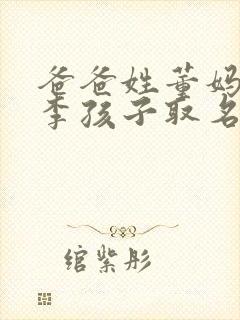 爸爸姓董妈
李孩子取名
绾紫彤